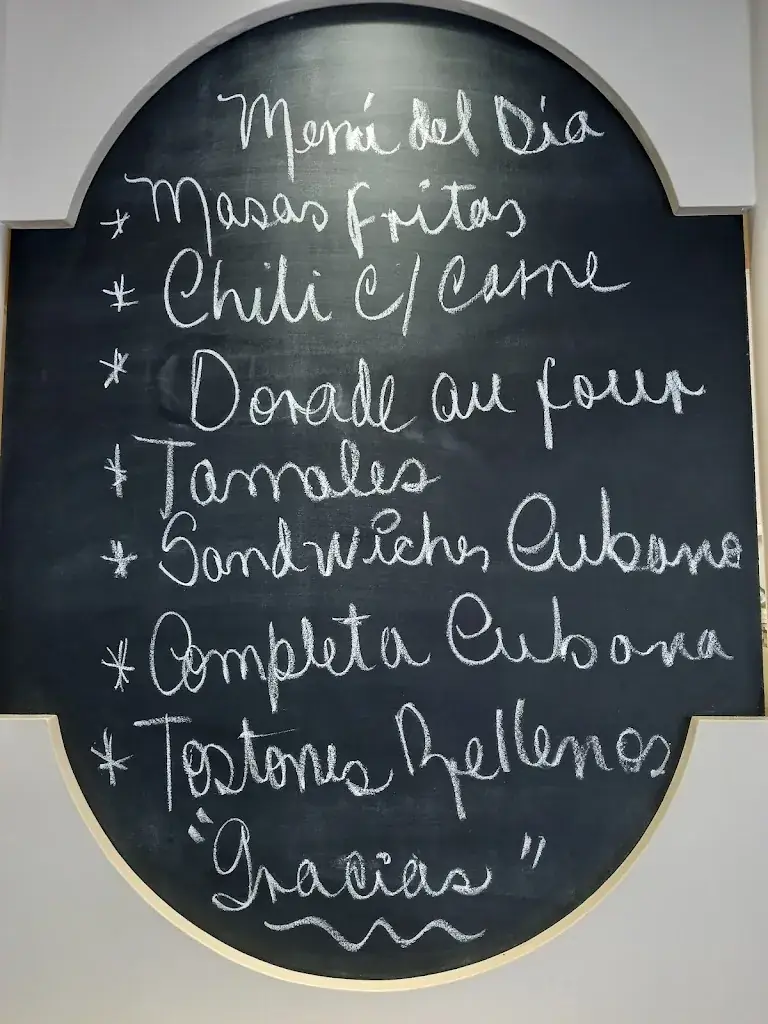 Menú del Día
* Masas fritas
* Chili c/ Carne
* Dorade au four
* Tamales
* Sandwiches Cubano
* Completa Cubana
* Tostones Rellenos
"Gracias"